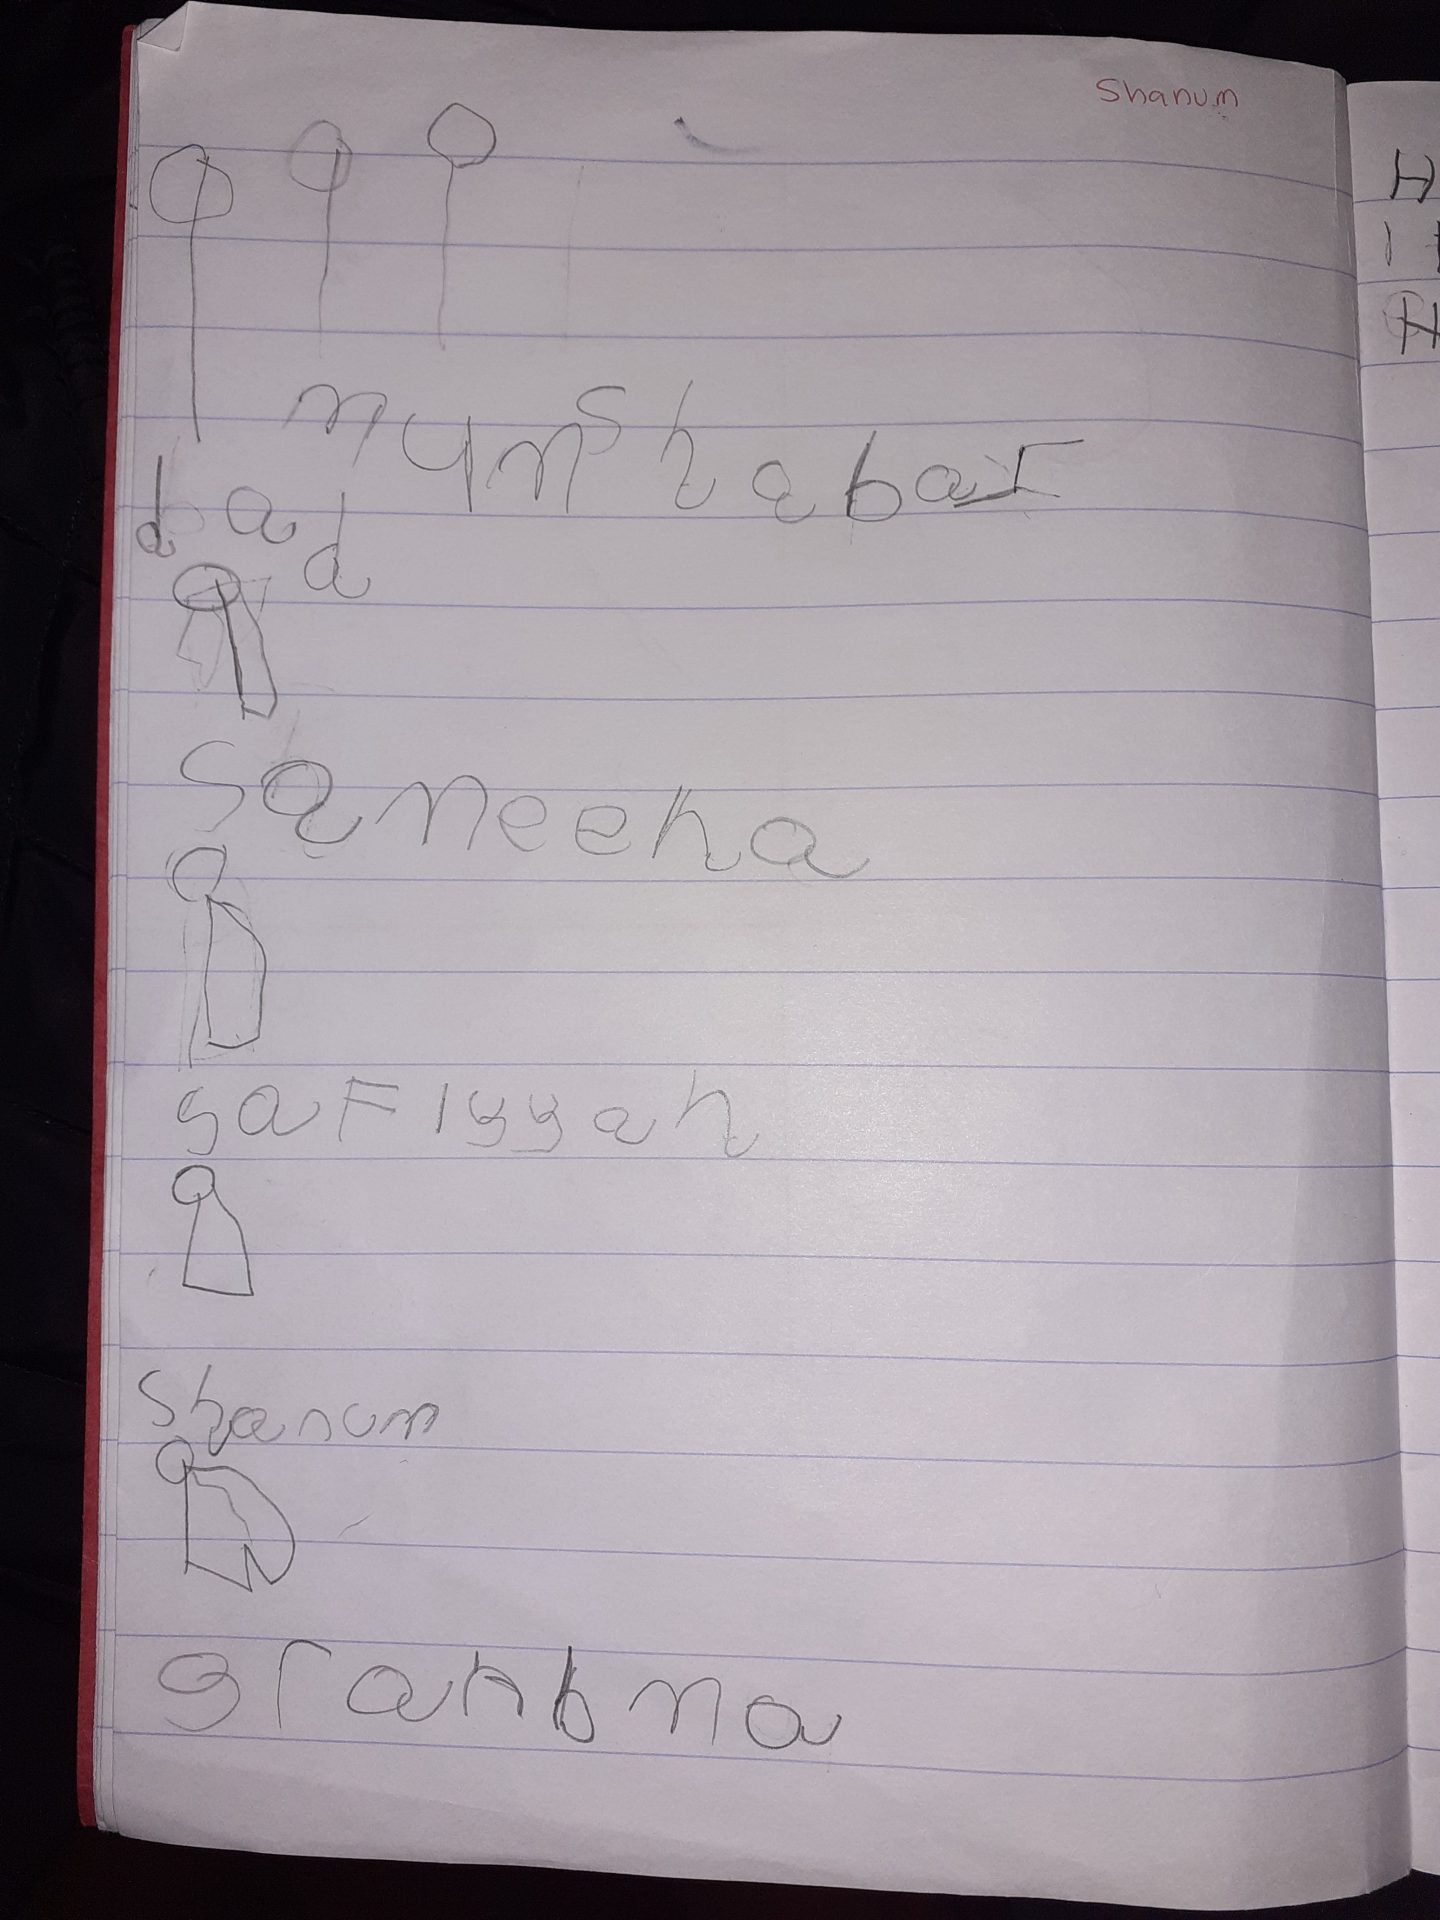 Shanum
mum shabaz
dad
saneeha
saFiyyah
Shanum
granbma
H